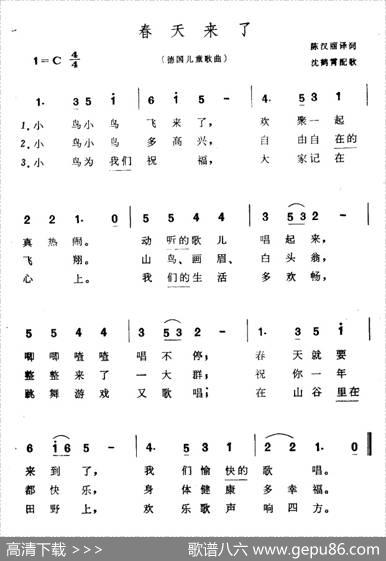 春天来了
1=C 4/4
（德国儿童歌曲）
陈汉丽译词
沈鹤霄配歌
1· 3 5 i | 6 i 5 - | 4· 5 3 1 |
1.小 鸟小鸟 飞来了， 欢聚一起
2.小 鸟小鸟 多高兴， 自由自在的
3.小 鸟为我们 祝福， 大家记在
2 2 1· 0 | 5 5 4 4 | 3 5 3 2 |
真热闹。 动听的歌儿 唱起来，
飞翔。 山鸟、画眉、 白头翁，
心上。 我们的生活 多欢畅，
5 5 4 4 | 3 5 3 2 - | 1· 3 5 i |
唧唧喳喳 唱不停； 春天就要
整整来了 一大群； 祝你一年
跳舞游戏 又歌唱； 在山谷里在
6 i 6 5 - | 4· 5 3 1 | 2 2 1· 0 ‖
来到了， 我们愉快的 歌唱。
都快乐， 身体健康 多幸福。
田野上， 欢乐歌声 响四方。
高清下载 >>>
歌谱八六 www.gepu86.com